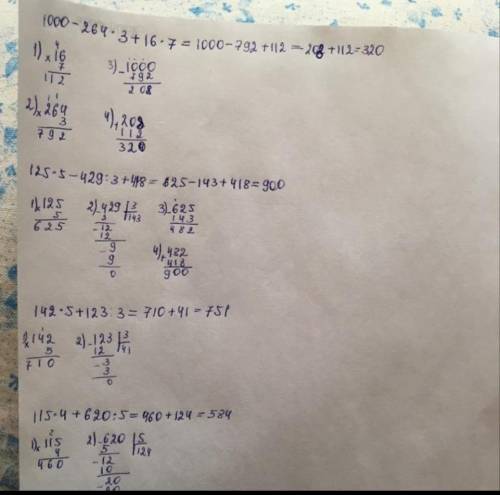 1000-264·3+16·7=1000-792+112=208+112=320
1) ×16 7 112
3) -1000 792 208
2) ×264 3 792
4) +208 112 320
125·5-429:3+418=625-143+418=900
1) ×125 5 625
2) -429 3 143 3 -12 12 -9 9 0
3) -625 143 482
4) +482 418 900
142·5+123:3=710+41=751
1) ×142 5 710
2) -123 3 41 12 -3 3 0
115·4+620:5=460+124=584
1) ×115 4 460
2) -620 5 124 5 -12 10 -20 20